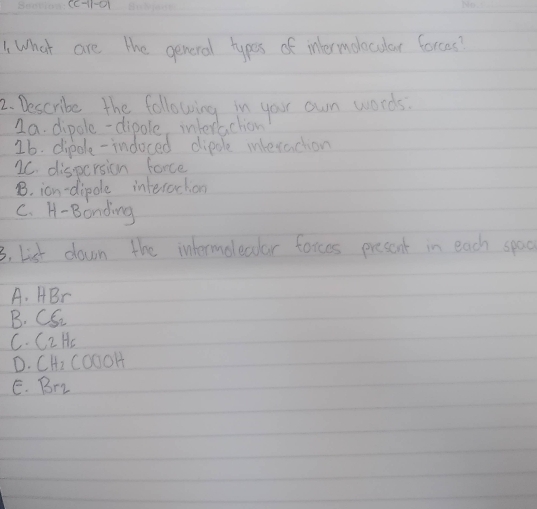 CC-11-01
1. What are the general types of intermolecular forces?
2. Describe the following in your own words.
1a. dipole-dipole interaction
1b. dipole-induced dipole interaction
1c. dispersion force
B. ion-dipole interaction
C. H-Bonding
3. List down the intermolecular forces present in each spec
A. HBr
B. CS2
C. C2H6
D. CH3COOOH
E. Br2